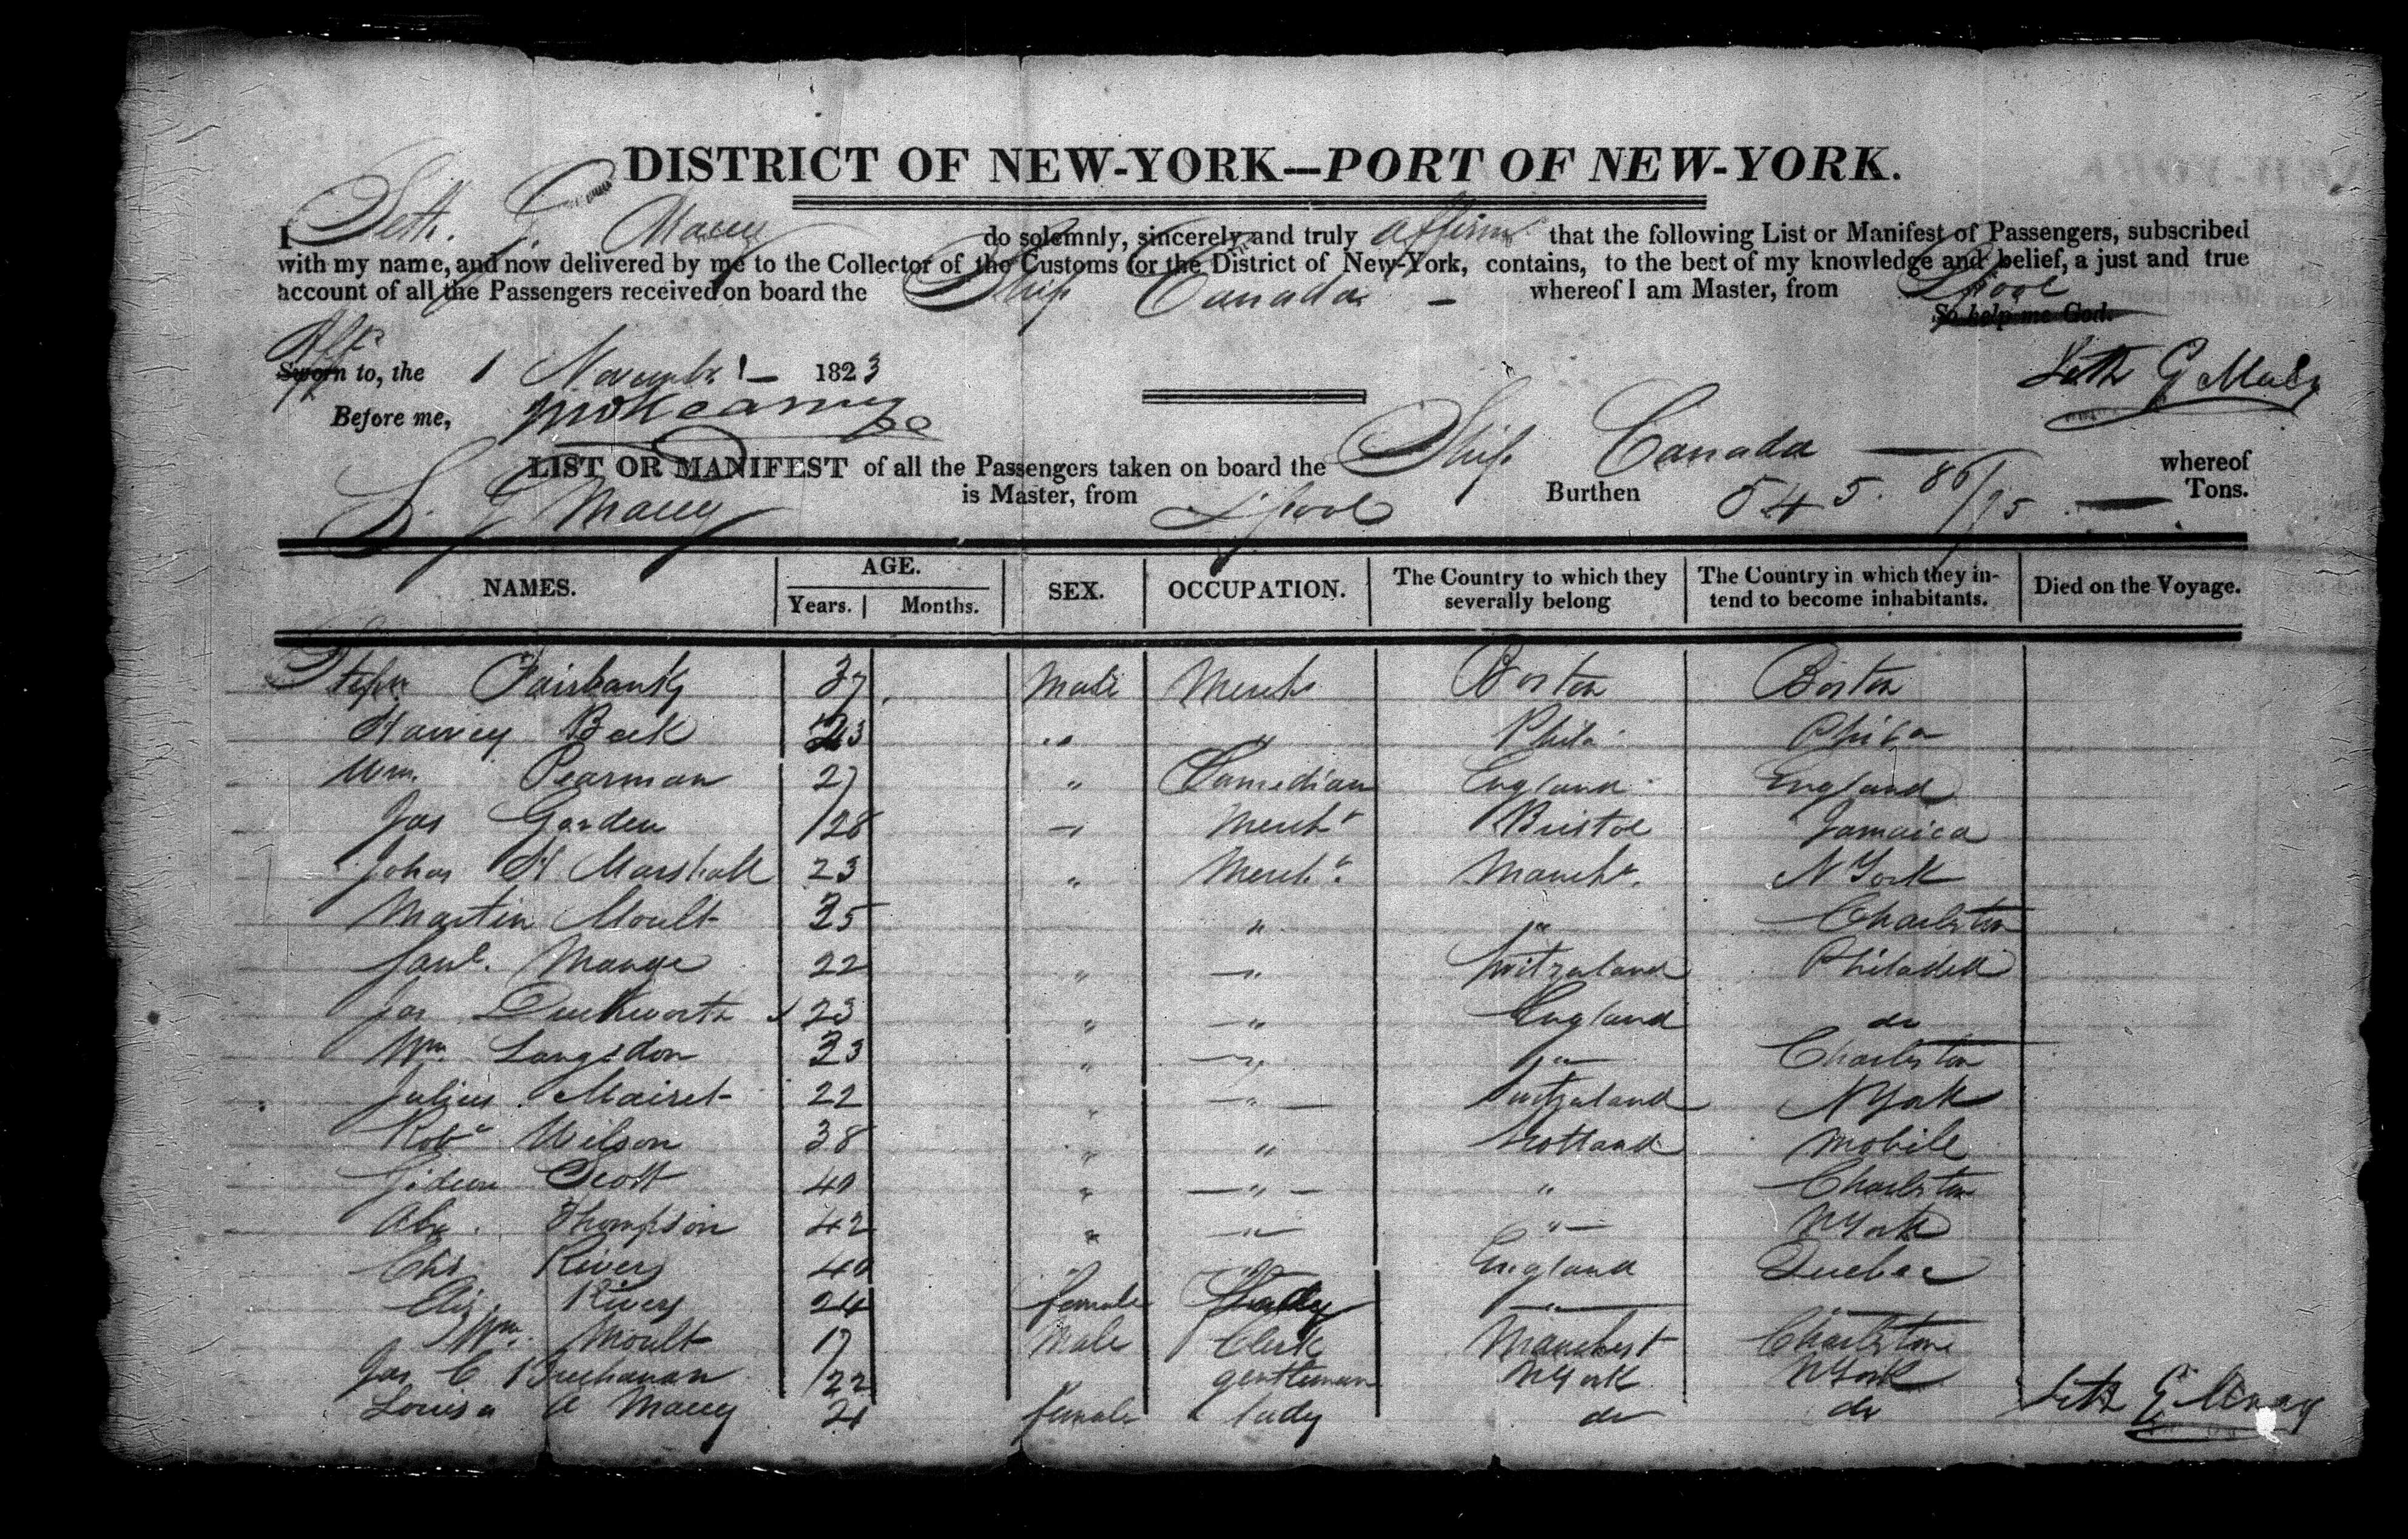 DISTRICT OF NEW-YORK—PORT OF NEW-YORK.
I Seth G Macy do solemnly, sincerely and truly affirm that the following List or Manifest of Passengers, subscribed
with my name, and now delivered by me to the Collector of the Customs for the District of New-York, contains, to the best of my knowledge and belief, a just and true
account of all the Passengers received on board the Ship Canada — whereof I am Master, from Lpool
So help me God.
Sworn to, the 1 November 1823
Seth G Macy
Before me,
LIST OR MANIFEST of all the Passengers taken on board the Ship Canada — whereof
S. G Macy is Master, from Lpool Burthen 545. 86/95 Tons.
NAMES. AGE. Years. Months. SEX. OCCUPATION. The Country to which they severally belong The Country in which they intend to become inhabitants. Died on the Voyage.
Stephn Fairbanks 37 Male Mercht Boston Boston
Harvey Beck 23 " " Phila Phila
Wm. Pearman 27 " Comedian England England
Jas Garden 28 " Mercht Bristol Jamaica
John H Marshall 23 " Mercht. Manchr. N York
Martin Moult 35 " " Charleston
Saml. Mange 22 " " Switzerland Philadel
Jas Duckworth 23 " " England do
Wm Langsdon 33 " " " Charleston
Julius Mairet 22 " " Switzerland N York
Robt Wilson 38 " " Scotland Mobile
Gideon Scott 40 " " " Charleston
Alex. Thompson 42 " " " N York
Chs Rivers 40 " " England Quebec
Eliz. Rivers 24 female Lady " "
Wm. Moult 17 Male Clerk Manchest Charleston
Jas C Buchanan 22 gentleman N York N York
Louisa A Macy 21 female lady do do
Seth G Macy